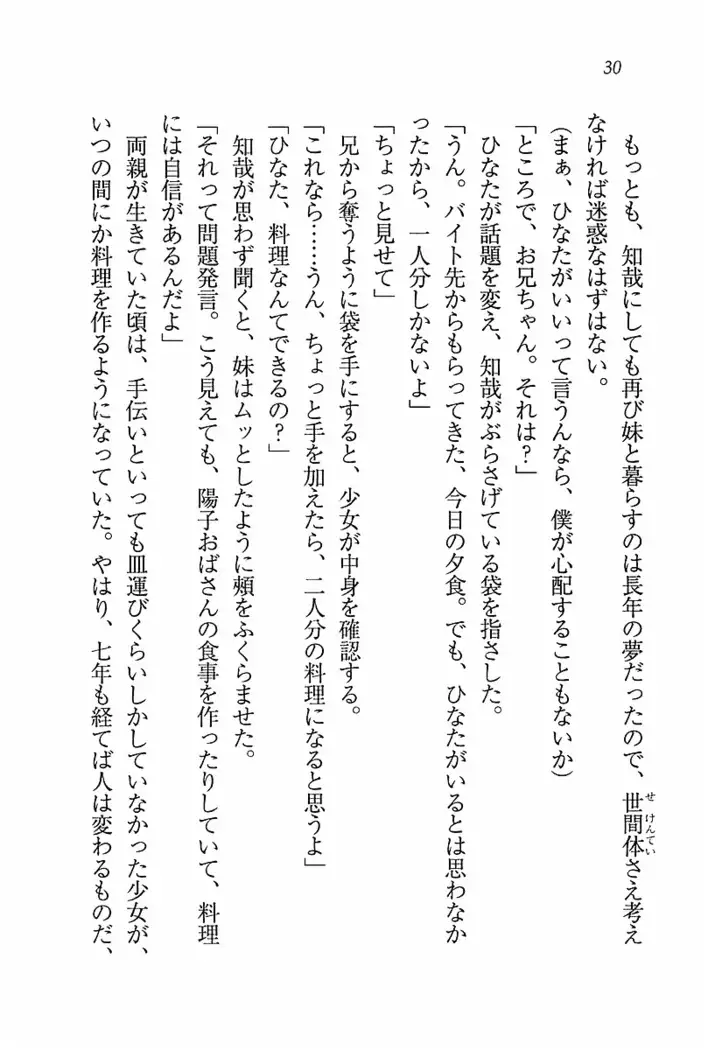 30
もっとも、知哉にしても再び妹と暮らすのは長年の夢だったので、世間体さえ考え
せけんてい
なければ迷惑なはずはない。
(まぁ、ひなたがいいって言うんなら、僕が心配することもないか)
「ところで、お兄ちゃん。それは?」
ひなたが話題を変え、知哉がぶらさげている袋を指さした。
「うん。バイト先からもらってきた、今日の夕食。でも、ひなたがいるとは思わなか
ったから、一人分しかないよ」
「ちょっと見せて」
兄から奪うように袋を手にすると、少女が中身を確認する。
「これなら……うん、ちょっと手を加えたら、二人分の料理になると思うよ」
「ひなた、料理なんてできるの?」
知哉が思わず聞くと、妹はムッとしたように頰をふくらませた。
「それって問題発言。こう見えても、陽子おばさんの食事を作ったりしていて、料理
には自信があるんだよ」
両親が生きていた頃は、手伝いといっても皿運びくらいしかしていなかった少女が、
いつの間にか料理を作るようになっていた。やはり、七年も経てば人は変わるものだ、